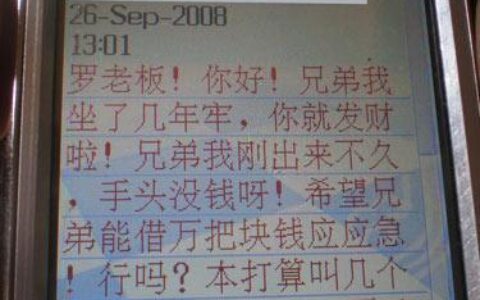 26-Sep-2008
13:01
罗老板！你好！兄弟我
坐了几年牢，你就发财
啦！兄弟我刚出来不久
，手头没钱呀！希望兄
弟能借万把块钱应应急
！行吗？本打算叫几个